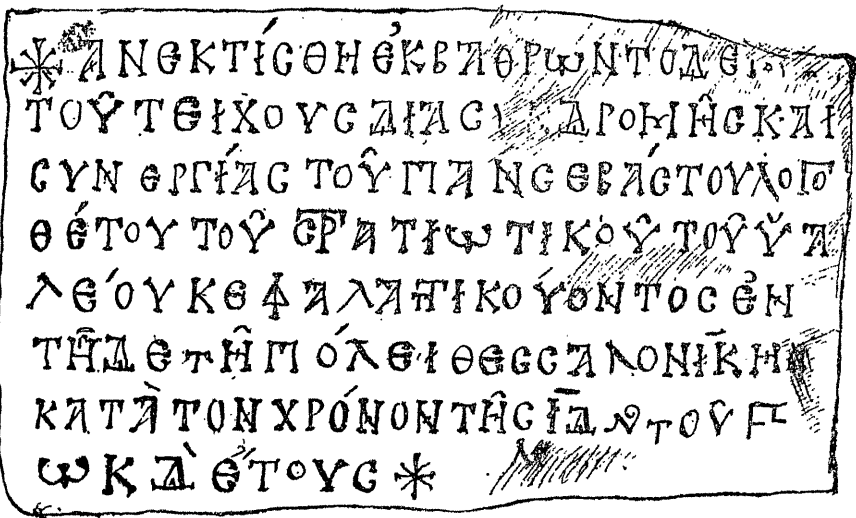 ΑΝΕΚΤΊCΘΗ ἘΚ ΒΑΘΡΩΝ ΤΟΔΕ
ΤΟΥ͂ ΤΕΙΧΟΥC ΔΙΑ C ΔΡΟΜΗ͂C ΚΑΙ
CΥΝΕΡΓΊΑC ΤΟΥ͂ ΠΑΝCΕΒΆCΤΟΥ ΛΟΓΟ
ΘΈΤΟΥ ΤΟΥ͂ CΤΡΑΤΙΩΤΙΚΟΥ͂ ΤΟΥ͂ ΫΑ
ΛΕΌΥ ΚΕΦΑΛΑΤΙΚΟΎΟΝΤΟC ἘΝ
ΤΗ͂ΔΕ ΤΗ͂ ΠΌΛΕΙ ΘΕCCΑΛΟΝΊΚΗ
ΚΑΤᾺ ΤΟΝ ΧΡΌΝΟΝ ΤΗ͂C ΙΔ ΤΟΥ͂ Ϛ
ΩΚΔ̀ ΈΤΟΥC